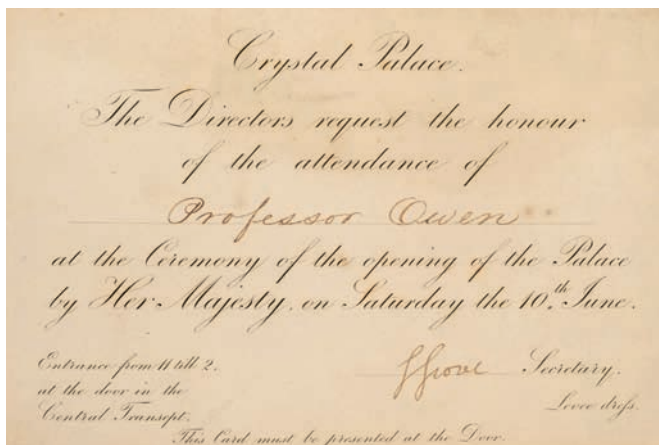 Crystal Palace.
The Directors request the honour
of the attendance of
Professor Owen
at the Ceremony of the opening of the Palace
by Her Majesty, on Saturday the 10.th June.
Entrance from 11 till 2.
at the door in the
Central Transept.
GGrove Secretary.
Levee dress.
This Card must be presented at the Door.